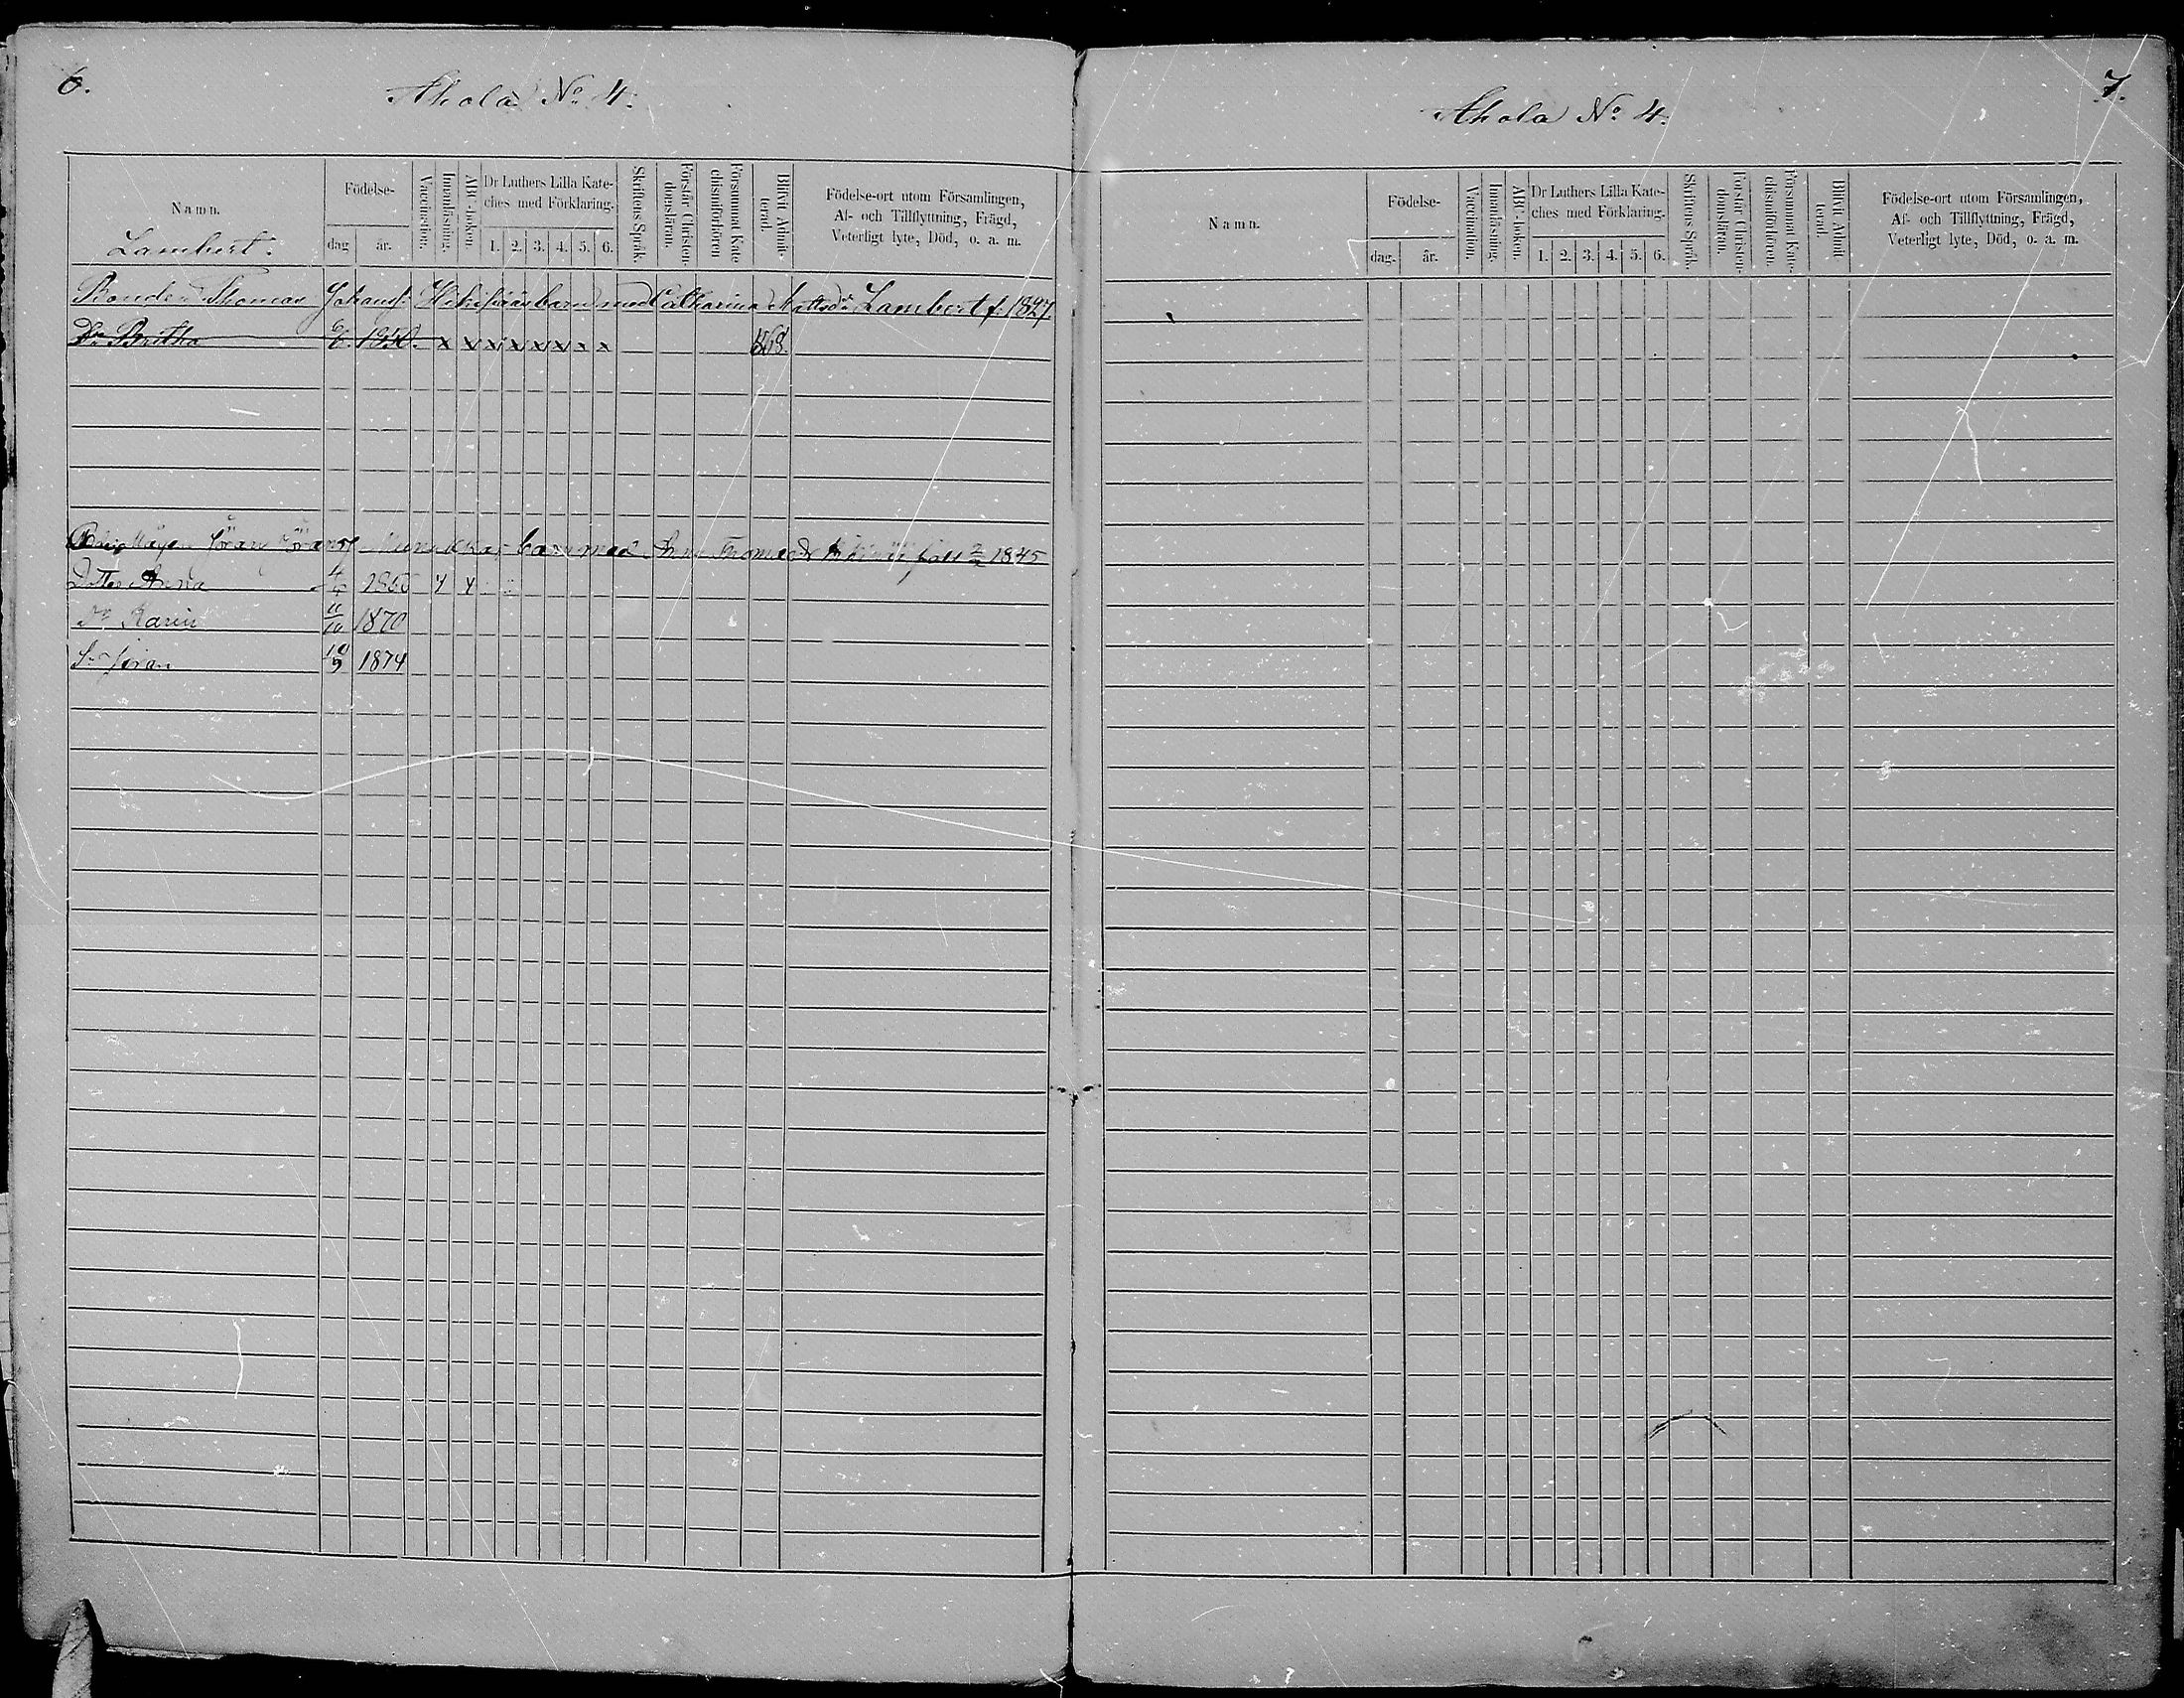 6.
Ahola No 4.
Namn.
Födelse-
dag
år.
Vaccination.
Innanläsning.
ABC-boken.
Dr Luthers Lilla Kate-
ches med Förklaring.
1. 2. 3. 4. 5. 6.
Skriftens Språk.
Förstår Christen-
domsläran.
Försummat Kate
chismiförhören
Blivit Admit-
terad.
Födelse-ort utom Församlingen,
Af- och Tillflyttning, Frägd,
Veterligt lyte, Död, o. a. m.
Lambert.
Bonden Thomas Johansf. barn med Catharina Mattsdr Lambert f. 1827.
Dr Britha 1850. x x x x x x x x 1868.
Jöran barn med Thomasdr 1845
Dotter Anna
Dr Karin 11/10 1870
Sn Jöran 10/9 1874
7.
Ahola No 4.
Namn.
Födelse-
dag.
år.
Vaccination.
Innanläsning.
ABC-boken.
Dr Luthers Lilla Kate-
ches med Förklaring.
1. 2. 3. 4. 5. 6.
Skriftens Språk.
Förstår Christen-
domsläran.
Försummat Kate-
chismiförhören.
Blivit Admit
terad.
Födelse-ort utom Församlingen,
Af- och Tillflyttning, Frägd,
Veterligt lyte, Död, o. a. m.